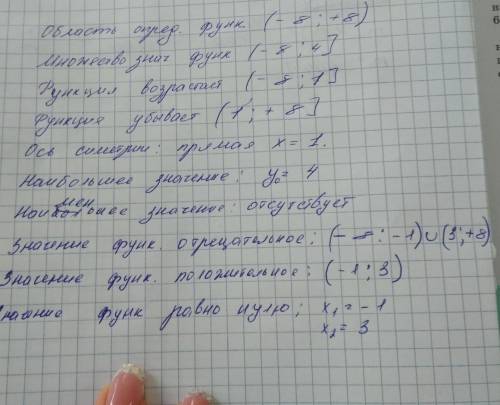 Область опред. функ. (- 8 ; +8)
Множество знач функ (- 8 ; 4]
Функция возрастает (- 8 ; 1]
Функция убывает (1 ; + 8]
Ось симетрии: прямая x = 1.
Наибольшее значение: y₀= 4
Наименьшее значение: отсутствует
Значение функ. отрецательное; (- 8 : -1) ∪ (3 ; +8)
Значение функ. положительное: (-1 ; 3)
функ равно нулю; x₁ = - 1
x₂ = 3